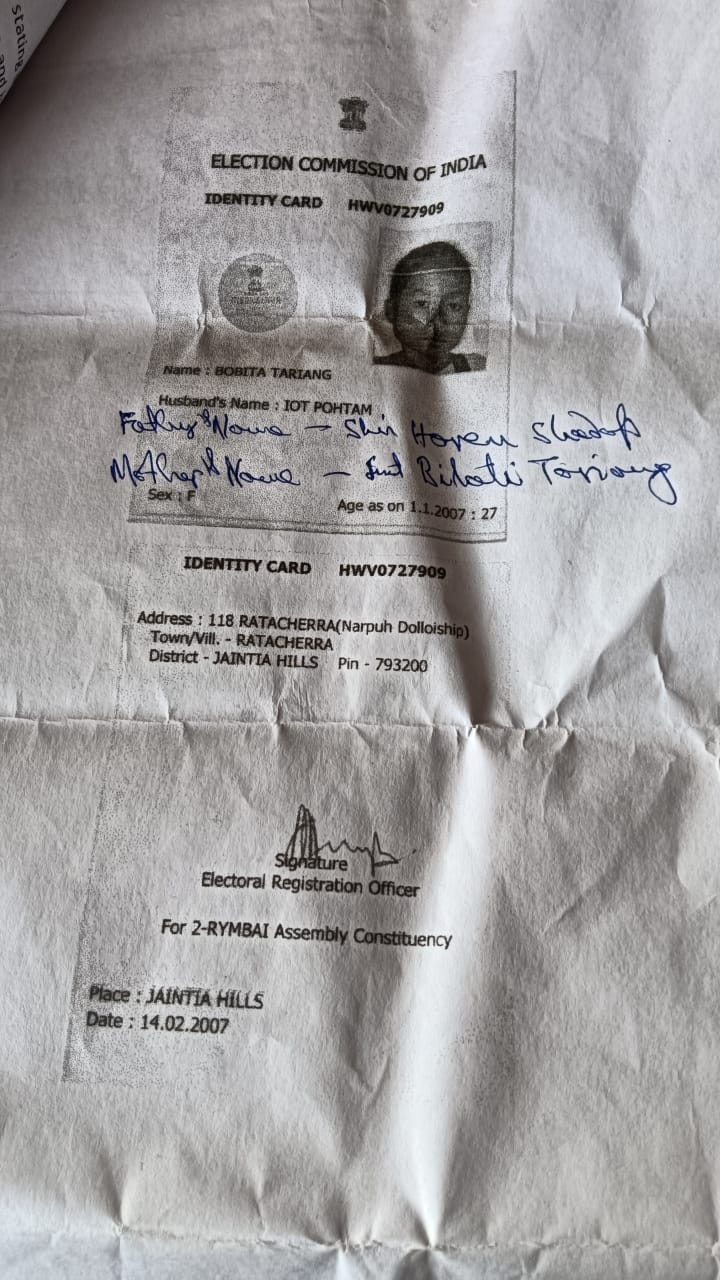 stating
and
ELECTION COMMISSION OF INDIA
IDENTITY CARD HWV0727909
Name : BOBITA TARIANG
Husband's Name : IOT POHTAM
Father's Name - Shri Horen Shadap
Mother's Name - Smt Bihati Tariang
Sex : F
Age as on 1.1.2007 : 27
IDENTITY CARD HWV0727909
Address : 118 RATACHERRA(Narpuh Dolloiship)
Town/Vill. - RATACHERRA
District - JAINTIA HILLS Pin - 793200
Signature
Electoral Registration Officer
For 2-RYMBAI Assembly Constituency
Place : JAINTIA HILLS
Date : 14.02.2007